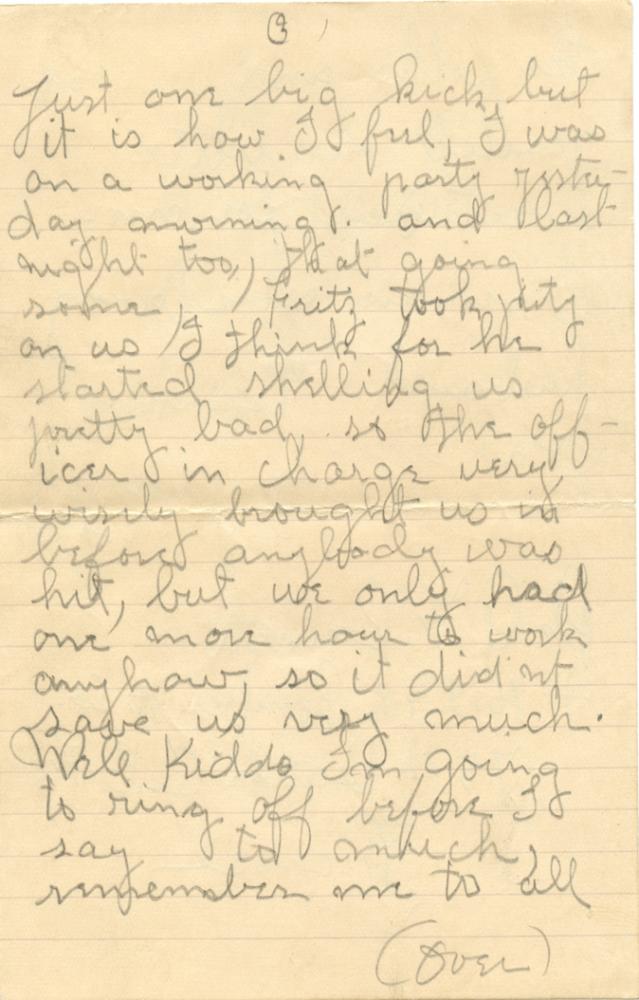 3
Just one big kick, but
it is how I feel, I was
on a working party yester-
day morning. and last
night too, that going
some, Fritz took pity
on us I think for he
started shelling us
pretty bad, so the off-
icer in charge very
wisely brought us in
before anybody was
hit, but we only had
one more hour to work
anyhow, so it did'nt
save us very much.
Well Kiddo I'm going
to ring off before I
say to much,
remember me to all
(Over)